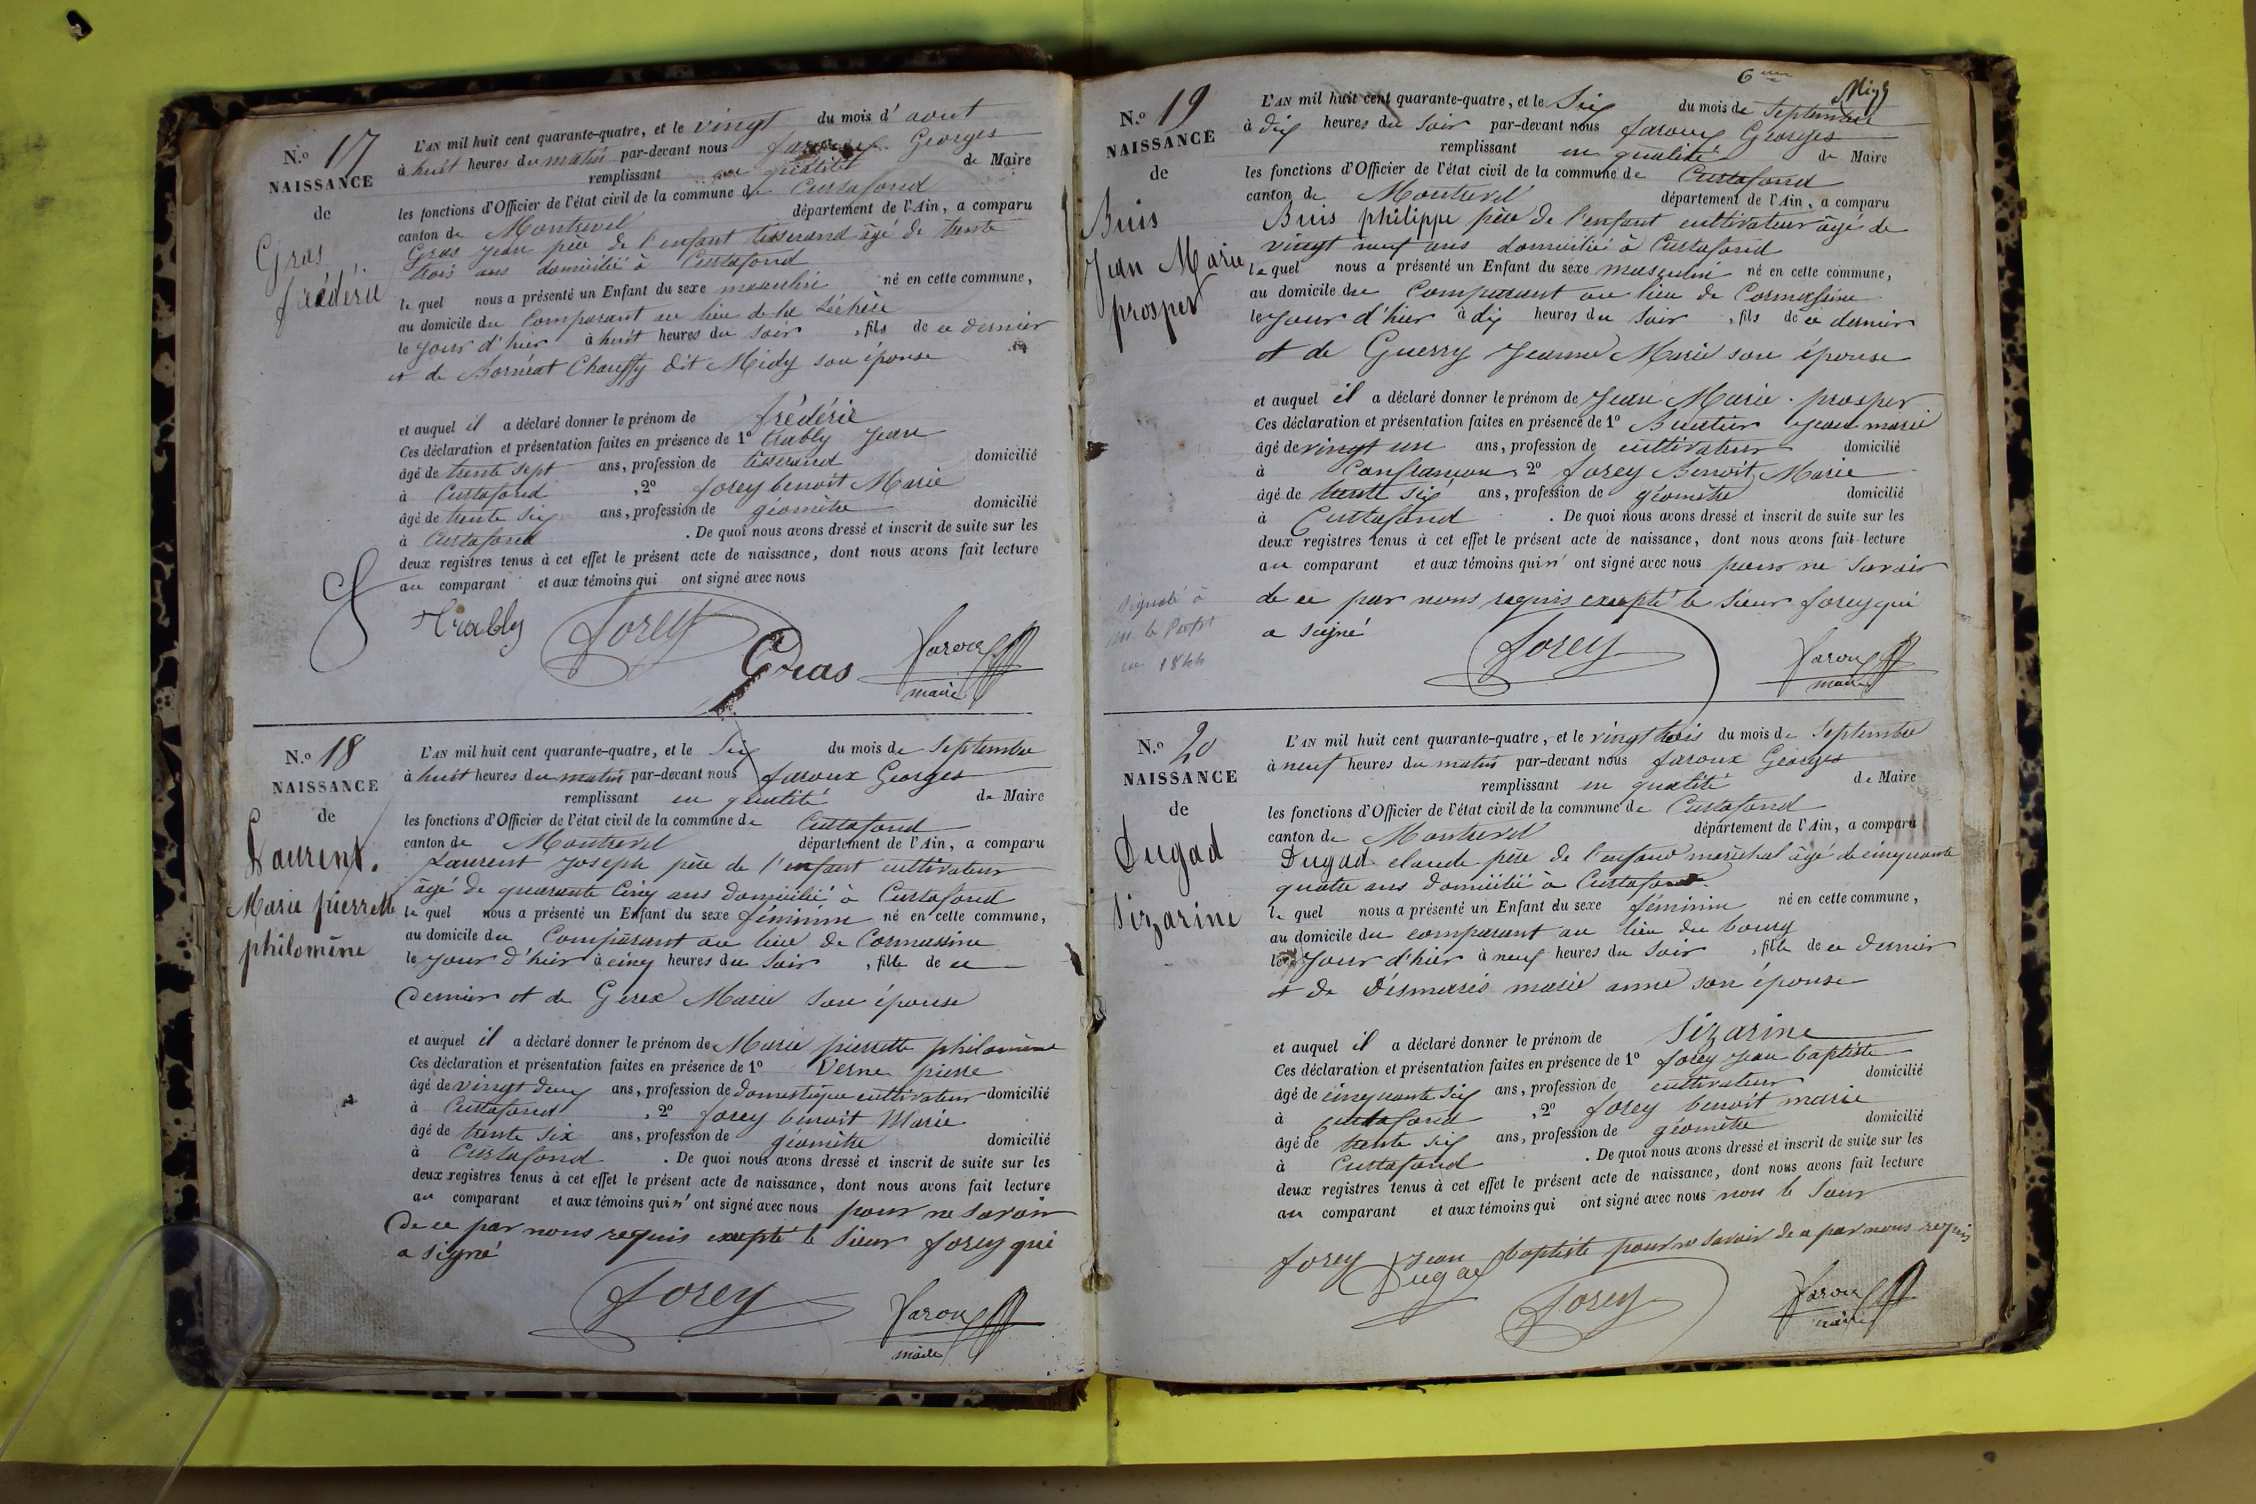 N.o 17
NAISSANCE
de
Gras
frédéric
L'AN mil huit cent quarante-quatre, et le vingt du mois d' aout
à huit heures du matin par-devant nous faroux Georges
remplissant en qualité de Maire
les fonctions d'Officier de l'état civil de la commune de Curtafond
canton de Montrevel département de l'Ain, a comparu
Gras jean père de l'enfant tisserand âgé de trente
trois ans domicilié à Curtafond
le quel nous a présenté un Enfant du sexe masculin né en cette commune,
au domicile du Comparant au lieu de la Léchère
le jour d'hier à huit heures du soir, fils de ce dernier
et de Bornéat Chauffy dit Midy son épouse
et auquel il a déclaré donner le prénom de frédéric
Ces déclaration et présentation faites en présence de 1o trably jean
âgé de trente sept ans, profession de tisserand domicilié
à Curtafond, 2o forey benoit Marie
âgé de trente six ans, profession de géomètre domicilié
à Curtafond. De quoi nous avons dressé et inscrit de suite sur les
deux registres tenus à cet effet le présent acte de naissance, dont nous avons fait lecture
au comparant et aux témoins qui ont signé avec nous
Trably forey Gras faroux
maire
N.o 18
NAISSANCE
de
Laurent.
Marie pierrette
philomène
L'AN mil huit cent quarante-quatre, et le Six du mois de Septembre
à huit heures du matin par-devant nous faroux Georges
remplissant en qualité de Maire
les fonctions d'Officier de l'état civil de la commune de Curtafond
canton de Montrevel département de l'Ain, a comparu
Laurent joseph père de l'enfant cultivateur
âgé de quarante Cinq ans domicilié à Curtafond
le quel nous a présenté un Enfant du sexe féminin né en cette commune,
au domicile du Comparant au lieu de Cormassine
le jour d'hier à cinq heures du Soir, fille de ce
dernier et de Gerex Marie Son épouse
et auquel il a déclaré donner le prénom de Marie pierrette philomène
Ces déclaration et présentation faites en présence de 1o Verne pierre
âgé de vingt deux ans, profession de domestique cultivateur domicilié
à Curtafond, 2o forey benoit Marie
âgé de trente six ans, profession de géomètre domicilié
à Curtafond. De quoi nous avons dressé et inscrit de suite sur les
deux registres tenus à cet effet le présent acte de naissance, dont nous avons fait lecture
au comparant et aux témoins qui n' ont signé avec nous pour ne savoir
de ce par nous requis excepté le Sieur forey qui
a signé
forey faroux
maire
6
N.o 19
NAISSANCE
de
Buis
Jean Marie
prosper
L'AN mil huit cent quarante-quatre, et le Six du mois de Septembre
à dix heures du soir par-devant nous faroux Georges
remplissant en qualité de Maire
les fonctions d'Officier de l'état civil de la commune de Curtafond
canton de Montrevel département de l'Ain, a comparu
Buis philippe père de l'enfant cultivateur âgé de
vingt neuf ans domicilié à Curtafond
le quel nous a présenté un Enfant du sexe masculin né en cette commune,
au domicile du Comparant au lieu de Cormassine
le jour d'hier à dix heures du soir, fils de ce dernier
et de Guerry Jeanne Marie son épouse
et auquel il a déclaré donner le prénom de Jean Marie. prosper
Ces déclaration et présentation faites en présence de 1o jean marie
âgé de vingt un ans, profession de cultivateur domicilié
à Confrançon 2o forey Benoit Marie
âgé de trente six ans, profession de géomètre domicilié
à Curtafond. De quoi nous avons dressé et inscrit de suite sur les
deux registres tenus à cet effet le présent acte de naissance, dont nous avons fait lecture
au comparant et aux témoins qui n' ont signé avec nous pour ne savoir
de ce par nous requis excepté le Sieur forey qui
a signé
forey faroux
maire
N.o 20
NAISSANCE
de
Dugad
Sizarine
L'AN mil huit cent quarante-quatre, et le vingt trois du mois de Septembre
à neuf heures du matin par-devant nous faroux Georges
remplissant en qualité de Maire
les fonctions d'Officier de l'état civil de la commune de Curtafond
canton de Montrevel département de l'Ain, a comparu
Dugad claude père de l'enfant maréchal âgé de cinquante
quatre ans domicilié à Curtafond
le quel nous a présenté un Enfant du sexe féminin né en cette commune,
au domicile du comparant au lieu du bourg
le jour d'hier à neuf heures du Soir, fille de ce dernier
et de Désmaris marie anne son épouse
et auquel il a déclaré donner le prénom de Sizarine
Ces déclaration et présentation faites en présence de 1o forey jean baptiste
âgé de cinquante six ans, profession de cultivateur domicilié
à Curtafond, 2o forey benoit marie
âgé de trente six ans, profession de géomètre domicilié
à Curtafond. De quoi nous avons dressé et inscrit de suite sur les
deux registres tenus à cet effet le présent acte de naissance, dont nous avons fait lecture
au comparant et aux témoins qui ont signé avec nous non le Sieur
forey jean baptiste pour ne savoir de ce par nous requis
Dugad forey faroux
maire